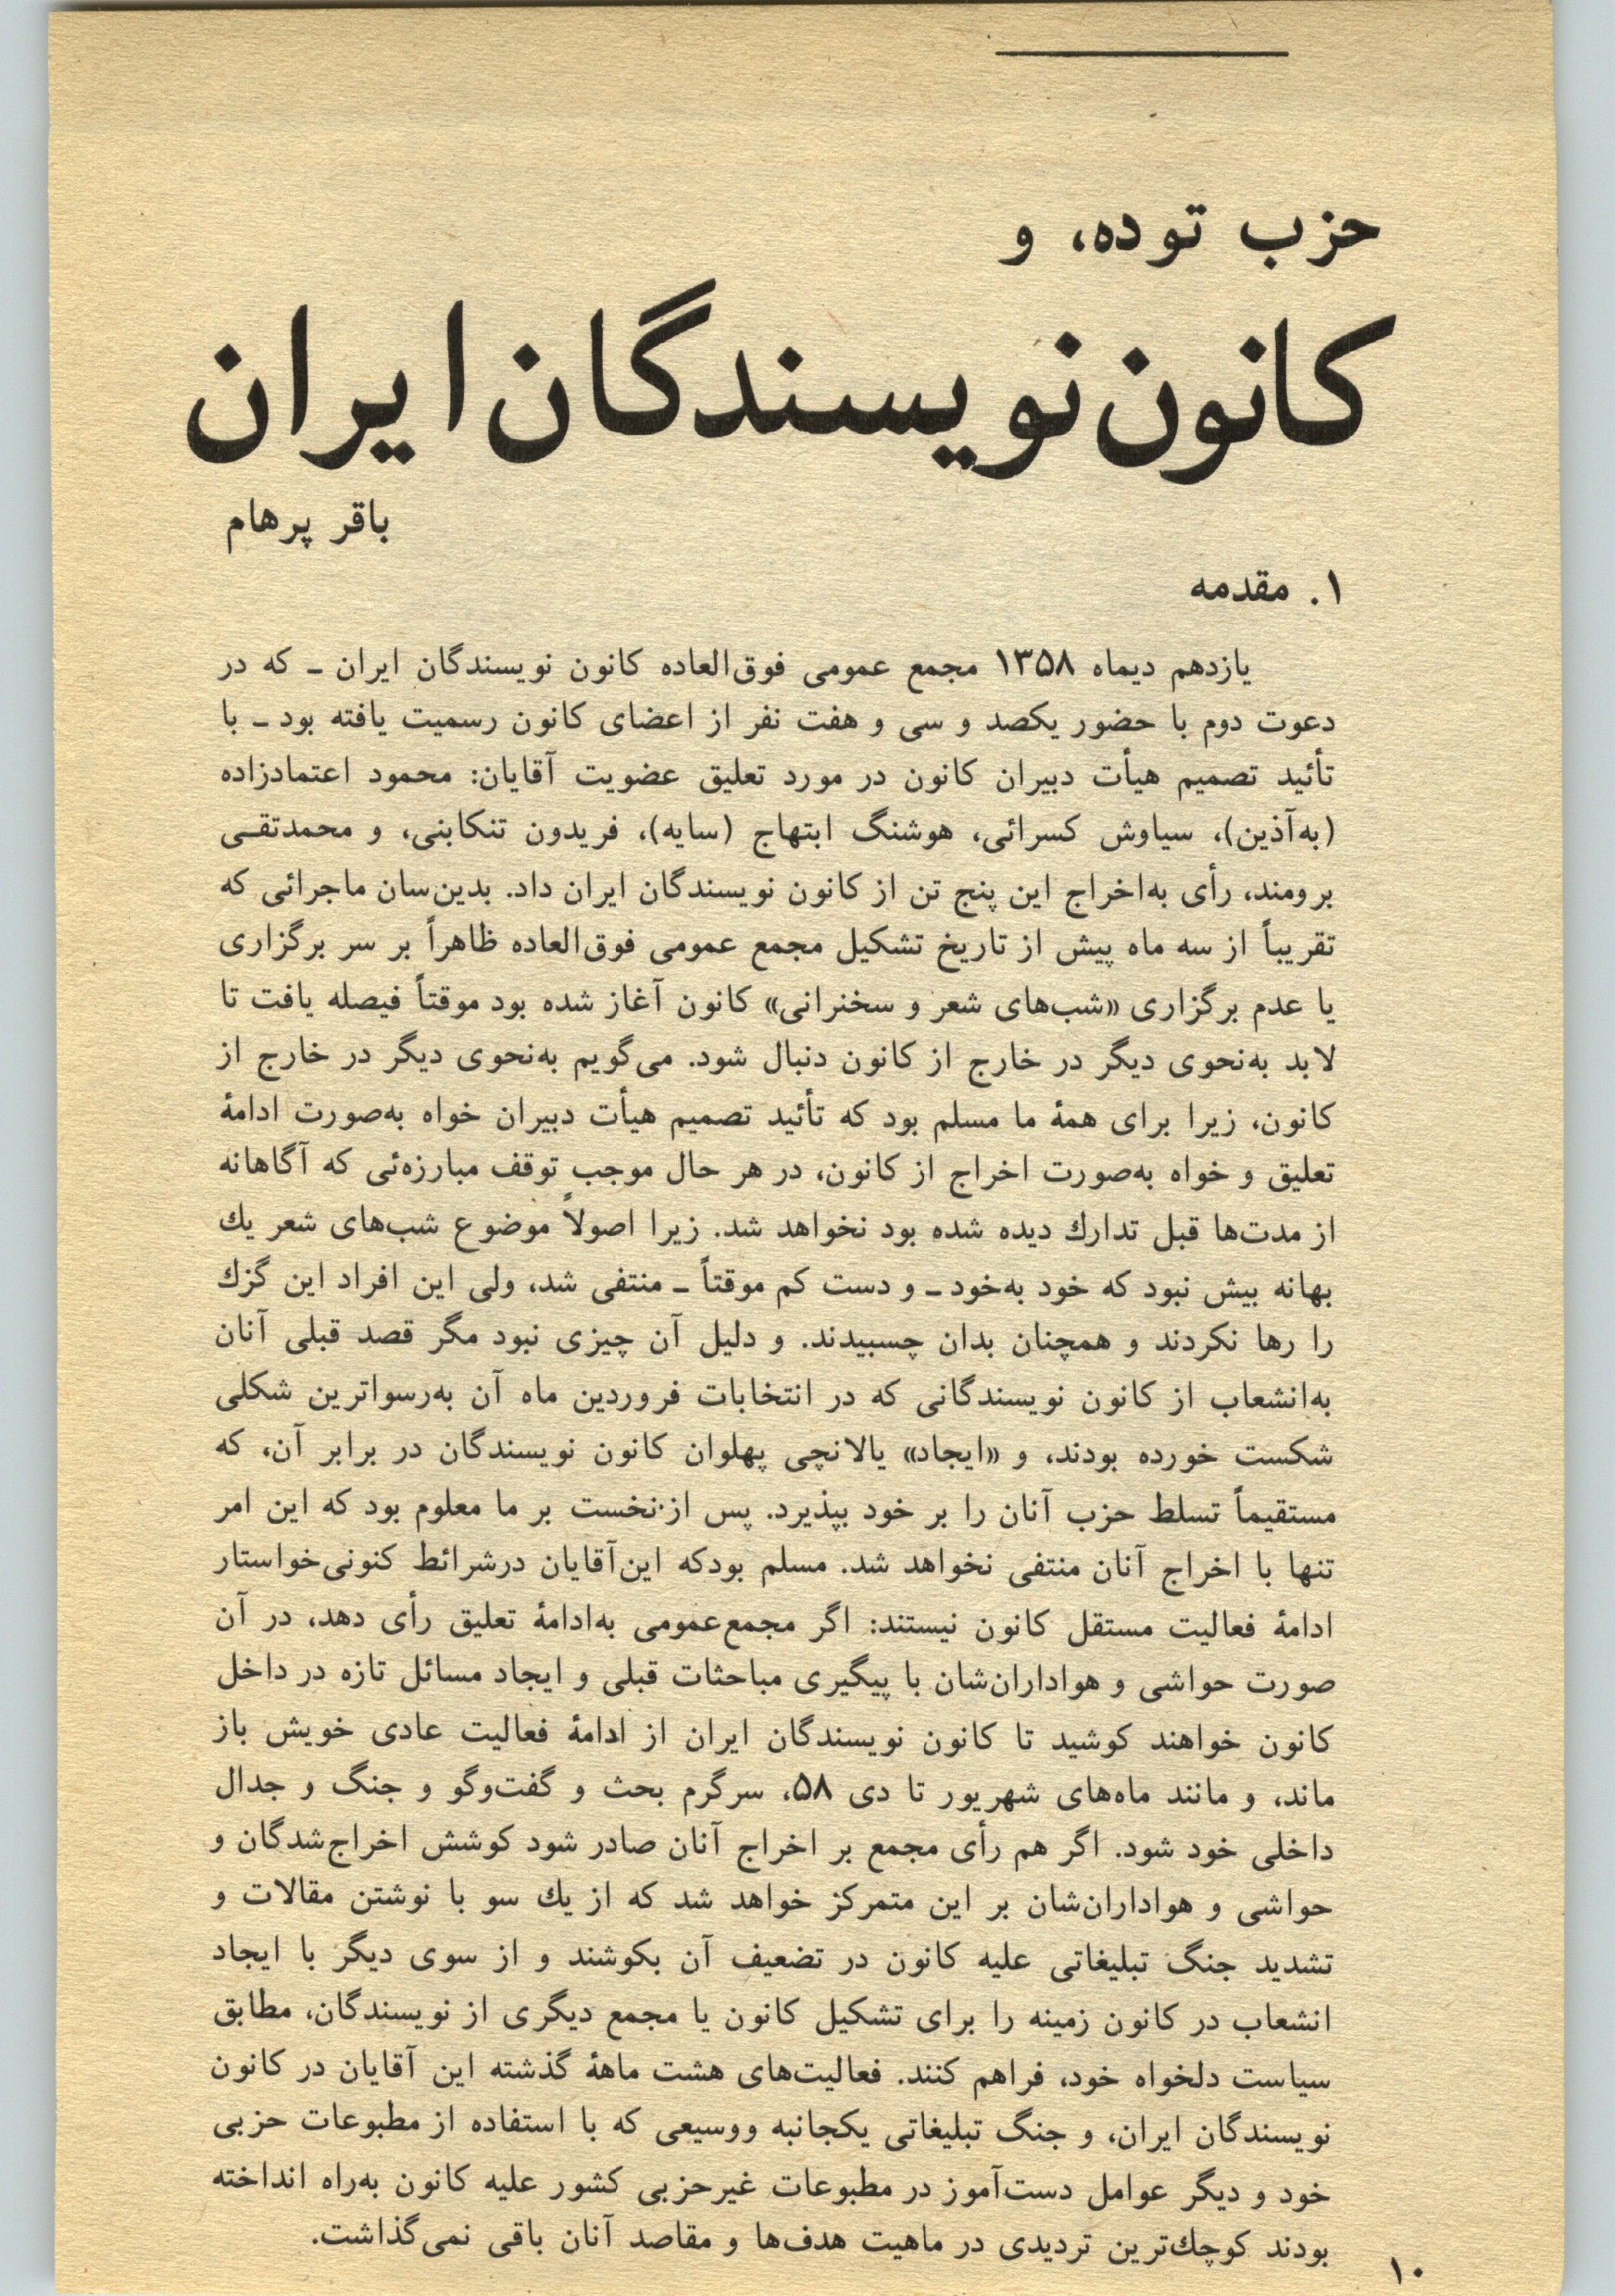 حزب توده، و
کانون نویسندگان ایران
باقر پرهام
۱. مقدمه
یازدهم دیماه ۱۳۵۸ مجمع عمومی فوق‌العاده کانون نویسندگان ایران ـ که در
دعوت دوم با حضور یکصد و سی و هفت نفر از اعضای کانون رسمیت یافته بود ـ با
تأئید تصمیم هیأت دبیران کانون در مورد تعلیق عضویت آقایان: محمود اعتمادزاده
(به‌آذین)، سیاوش کسرائی، هوشنگ ابتهاج (سایه)، فریدون تنکابنی، و محمدتقـی
برومند، رأی به‌اخراج این پنج تن از کانون نویسندگان ایران داد. بدین‌سان ماجرائی که
تقریباً از سه ماه پیش از تاریخ تشکیل مجمع عمومی فوق‌العاده ظاهراً بر سر برگزاری
یا عدم برگزاری «شب‌های شعر و سخنرانی» کانون آغاز شده بود موقتاً فیصله یافت تا
لابد به‌نحوی دیگر در خارج از کانون دنبال شود. می‌گویم به‌نحوی دیگر در خارج از
کانون، زیرا برای همهٔ ما مسلم بود که تأئید تصمیم هیأت دبیران خواه به‌صورت ادامهٔ
تعلیق و خواه به‌صورت اخراج از کانون، در هر حال موجب توقف مبارزه‌ئی که آگاهانه
از مدت‌ها قبل تدارك دیده شده بود نخواهد شد. زیرا اصولاً موضوع شب‌های شعر یك
بهانه بیش نبود که خود به‌خود ـ و دست کم موقتاً ـ منتفی شد، ولی این افراد این گزك
را رها نکردند و همچنان بدان چسبیدند. و دلیل آن چیزی نبود مگر قصد قبلی آنان
به‌انشعاب از کانون نویسندگانی که در انتخابات فروردین ماه آن به‌رسواترین شکلی
شکست خورده بودند، و «ایجاد» یالانچی پهلوان کانون نویسندگان در برابر آن، که
مستقیماً تسلط حزب آنان را بر خود بپذیرد. پس از نخست بر ما معلوم بود که این امر
تنها با اخراج آنان منتفی نخواهد شد. مسلم بودکه این‌آقایان درشرائط کنونی‌خواستار
ادامهٔ فعالیت مستقل کانون نیستند: اگر مجمع‌عمومی به‌ادامهٔ تعلیق رأی دهد، در آن
صورت حواشی و هواداران‌شان با پیگیری مباحثات قبلی و ایجاد مسائل تازه در داخل
کانون خواهند کوشید تا کانون نویسندگان ایران از ادامهٔ فعالیت عادی خویش باز
ماند، و مانند ماه‌های شهریور تا دی ۵۸، سرگرم بحث و گفت‌وگو و جنگ و جدال
داخلی خود شود. اگر هم رأی مجمع بر اخراج آنان صادر شود کوشش اخراج‌شدگان و
حواشی و هواداران‌شان بر این متمرکز خواهد شد که از یك سو با نوشتن مقالات و
تشدید جنگ تبلیغاتی علیه کانون در تضعیف آن بکوشند و از سوی دیگر با ایجاد
انشعاب در کانون زمینه را برای تشکیل کانون یا مجمع دیگری از نویسندگان، مطابق
سیاست دلخواه خود، فراهم کنند. فعالیت‌های هشت ماههٔ گذشته این آقایان در کانون
نویسندگان ایران، و جنگ تبلیغاتی یکجانبه ووسیعی که با استفاده از مطبوعات حزبی
خود و دیگر عوامل دست‌آموز در مطبوعات غیرحزبی کشور علیه کانون به‌راه انداخته
بودند کوچك‌ترین تردیدی در ماهیت هدف‌ها و مقاصد آنان باقی نمی‌گذاشت.
۱۰